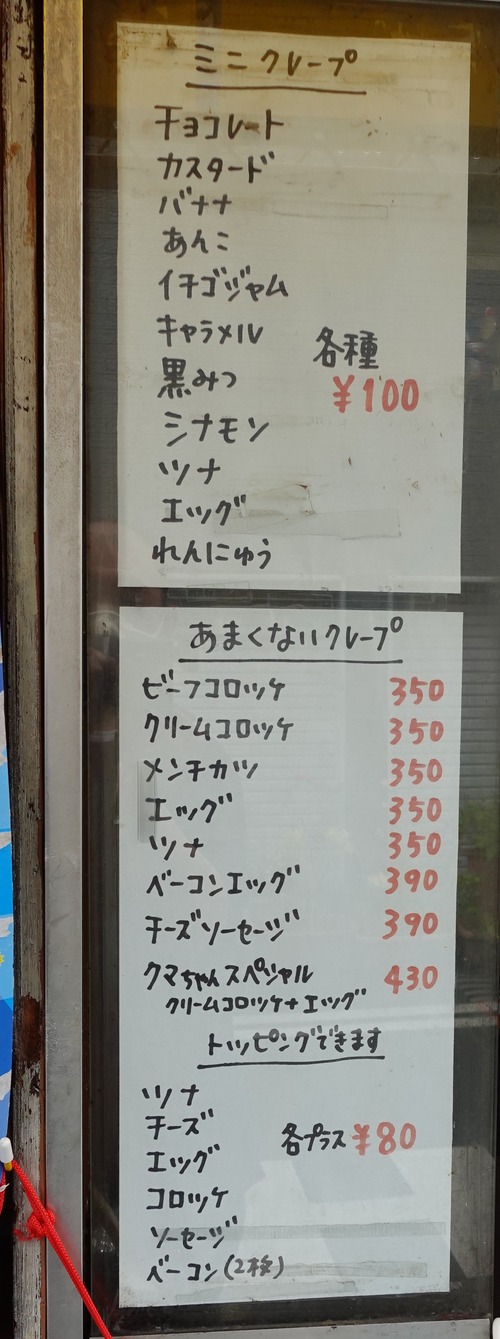 ミニクレープ
チョコレート
カスタード
バナナ
あんこ
イチゴジャム
キャラメル
黒みつ
シナモン
ツナ
エッグ
れんにゅう
各種
¥100
あまくないクレープ
ビーフコロッケ 350
クリームコロッケ 350
メンチカツ 350
エッグ 350
ツナ 350
ベーコンエッグ 390
チーズソーセージ 390
クマちゃんスペシャル 430
クリームコロッケ+エッグ
トッピングできます
ツナ
チーズ
エッグ
コロッケ
ソーセージ
ベーコン(2枚)
各プラス ¥80